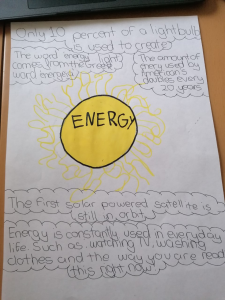 Only 10 percent of a lightbulb
is used to create
light
The word energy
comes from the Greek
word energeia
The amount of
energy used by
Americans
doubles every
20 years
ENERGY
The first solar powered satellite is
still in orbit
Energy is constantly used in everyday
life. Such as watching TV, washing
clothes and the way you are read
this right now